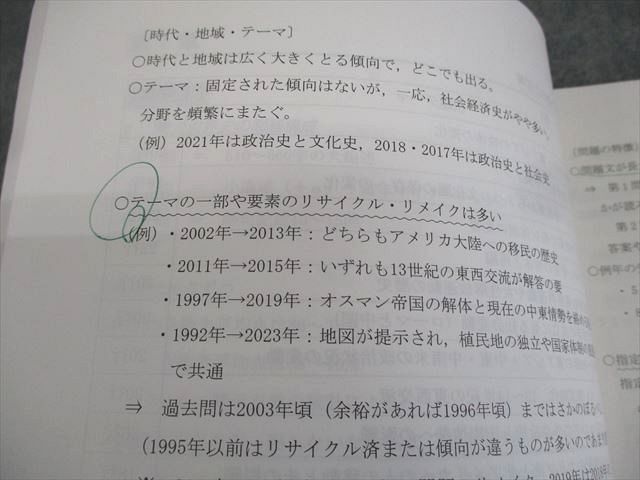 ［時代・地域・テーマ］
○時代と地域は広く大きくとる傾向で，どこでも出る。
○テーマ：固定された傾向はないが，一応，社会経済史がやや多い。
分野を頻繁にまたぐ。
（例）2021年は政治史と文化史，2018・2017年は政治史と社会史
○テーマの一部や要素のリサイクル・リメイクは多い
（例）・2002年→2013年：どちらもアメリカ大陸への移民の歴史
・2011年→2015年：いずれも13世紀の東西交流が解答の要
・1997年→2019年：オスマン帝国の解体と現在の中東情勢を
・1992年→2023年：地図が提示され，植民地の独立や国家体制の
で共通
⇒ 過去問は2003年頃（余裕があれば1996年頃）まではさかのぼる
（1995年以前はリサイクル済または傾向が違うものが多いので
2019年は2018年
［問題の特徴］
○問題文が長
⇒ 第1
かが読
第2
答案や
○例年の
・5
・8
⇒
指定
○指定